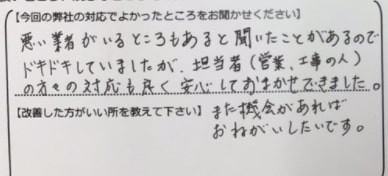 【今回の弊社の対応でよかったところをお聞かせください】
悪い業者がいるところもあると聞いたことがあるので
ドキドキしていましたが、担当者(営業、工事の人)
の方々の対応も良く安心しておまかせできました。
【改善した方がいい所を教えて下さい】
また機会があれば
おねがいしたいです。